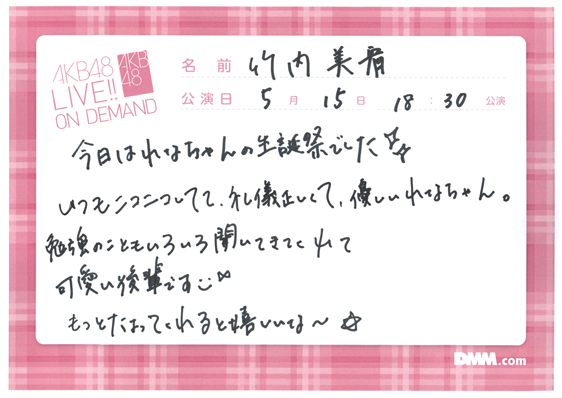 AKB48
LIVE!!
ON DEMAND
AKB
48
名前 竹内美宥
公演日 5月15日 18:30公演
今日はれなちゃんの生誕祭でした☆
いつもニコニコしてて、礼儀正しくて、優しいれなちゃん。
勉強のこともいろいろ聞いてきてくれて
可愛い後輩です
もっとたよってくれると嬉しいな〜☆
DMM.com